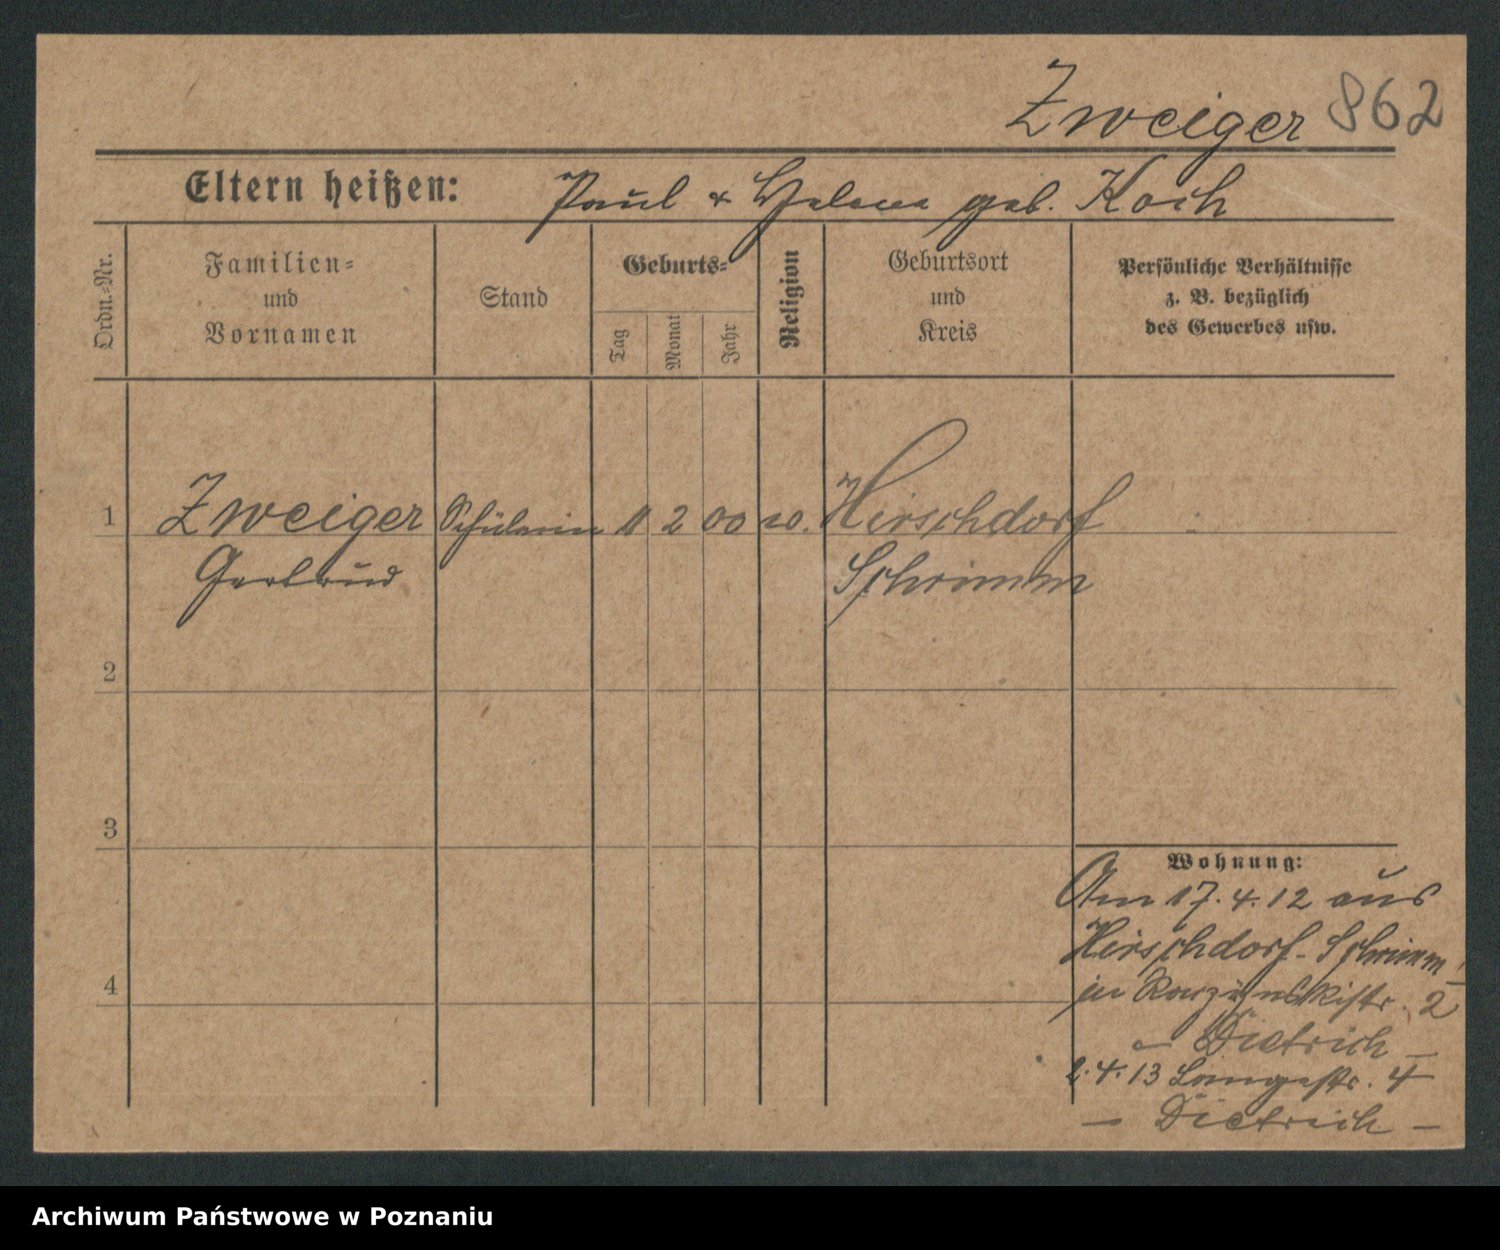 Zweiger 862
Eltern heißen: Paul & Helene geb. Koch
Ordn.-Nr.
Familien-
und
Vornamen
Stand
Geburts-
Tag
Monat
Jahr
Religion
Geburtsort
und
Kreis
Persönliche Verhältnisse
z. B. bezüglich
des Gewerbes usw.
1 Zweiger Schülerin 11 2 00 Hirschdorf
Gertrud Schrimm
2
3
4
Wohnung:
Am 17.4.12 aus
Hirschdorf-Schrimm
in 2
- Dietrich -
2.4.13 Langestr. 4
- Dietrich -
Archiwum Państwowe w Poznaniu